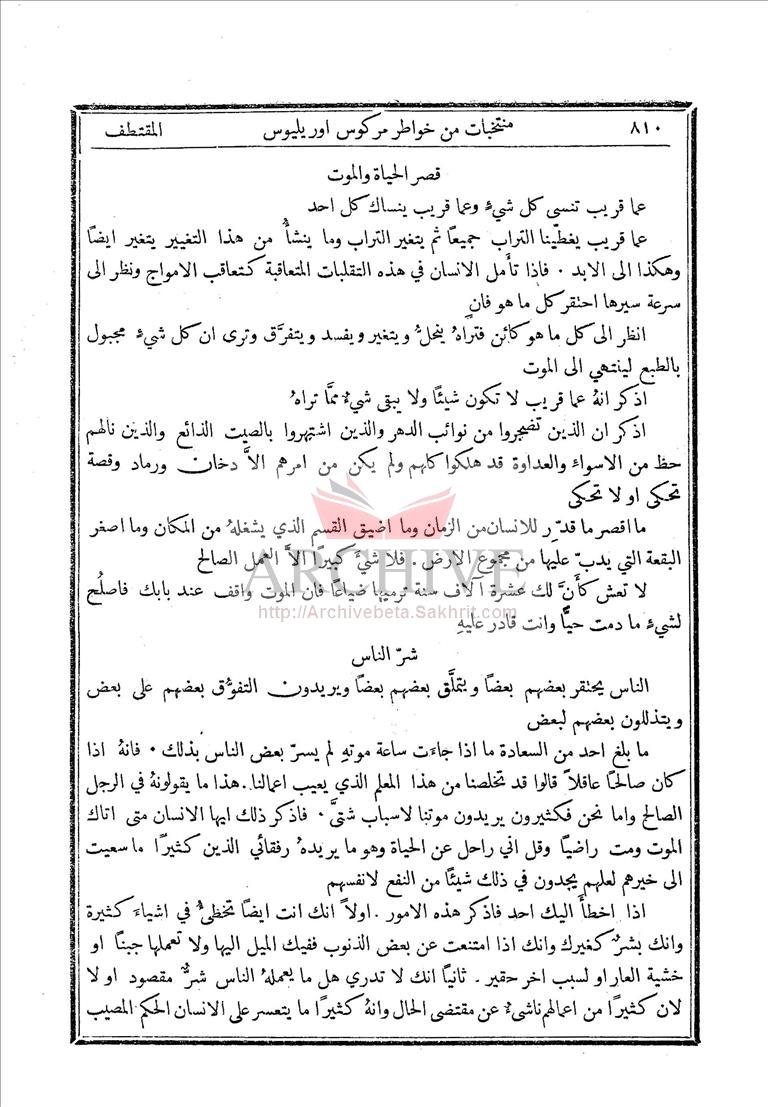 ٨١٠ منتخبات من خواطر مركوس اوريليوس المقتطف
قصر الحياة والموت
عما قريب تنسى كل شيءٍ وعما قريب ينساك كل احد
عما قريب يغطّينا التراب جميعًا ثم يتغير التراب وما ينشأُ من هذا التغيير يتغير ايضًا
وهكذا الى الابد . فاذا تأَمل الانسان في هذه التقلبات المتعاقبة كتعاقب الامواج ونظر الى
سرعة سيرها احتقر كل ما هو فانٍ
انظر الى كل ما هو كائن فتراهُ ينحلُّ ويتغير ويفسد ويتفرَّق وترى ان كل شيءٍ مجبول
بالطبع لينتهي الى الموت
اذكر انهُ عما قريب لا تكون شيئًا ولا يبقى شيءٌ ممَّا تراهُ
اذكر ان الذين تضجروا من نوائب الدهر والذين اشتهروا بالصيت الذائع والذين نالهم
حظ من الاسواء والعداوة قد هلكوا كلهم ولم يكن من امرهم الاَّ دخان ورماد وقصة
تحكى او لا تحكى
ما اقصر ما قدّر للانسان من الزمان وما اضيق القسم الذي يشغلهُ من المكان وما اصغر
البقعة التي يدبّ عليها من مجموع الارض . فلا شيءَ كبيرًا الاَّ العمل الصالح
ARCHIVE
لا تعش كأَنَّ لك عشرة آلاف سنة ترميها ضياعًا فان الموت واقف عند بابك فاصلُح
http://Archivebeta.Sakhrit.com
لشيءٍ ما دمت حيًّا وانت قادر عليهِ
شرّ الناس
الناس يحتقر بعضهم بعضًا ويتملَّق بعضهم بعضًا ويريدون التفوّق بعضهم على بعض
ويتذللون بعضهم لبعض
ما بلغ احد من السعادة ما اذا جاءَت ساعة موتهِ لم يسرّ بعض الناس بذلك . فانهُ اذا
كان صالحًا عاقلاً قالوا قد تخلصنا من هذا المعلم الذي يعيب اعمالنا . هذا ما يقولونهُ في الرجل
الصالح واما نحن فكثيرون يريدون موتنا لاسباب شتَّى . فاذكر ذلك ايها الانسان متى اتاك
الموت ومت راضيًا وقل اني راحل عن الحياة وهو ما يريدهُ رفقائي الذين كثيرًا ما سعيت
الى خيرهم لعلهم يجدون في ذلك شيئًا من النفع لانفسهم
اذا اخطأَ اليك احد فاذكر هذه الامور . اولاً انك انت ايضًا تخطىُّ في اشياءَ كثيرة
وانك بشرٌ كغيرك وانك اذا امتنعت عن بعض الذنوب ففيك الميل اليها ولا تعملها جبنًا او
خشية العار او لسبب اخر حقير . ثانيًا انك لا تدري هل ما يعملهُ الناس شرٌّ مقصود او لا
لان كثيرًا من اعمالهم ناشىءٌ عن مقتضى الحال وانهُ كثيرًا ما يتعسر على الانسان الحكم المصيب